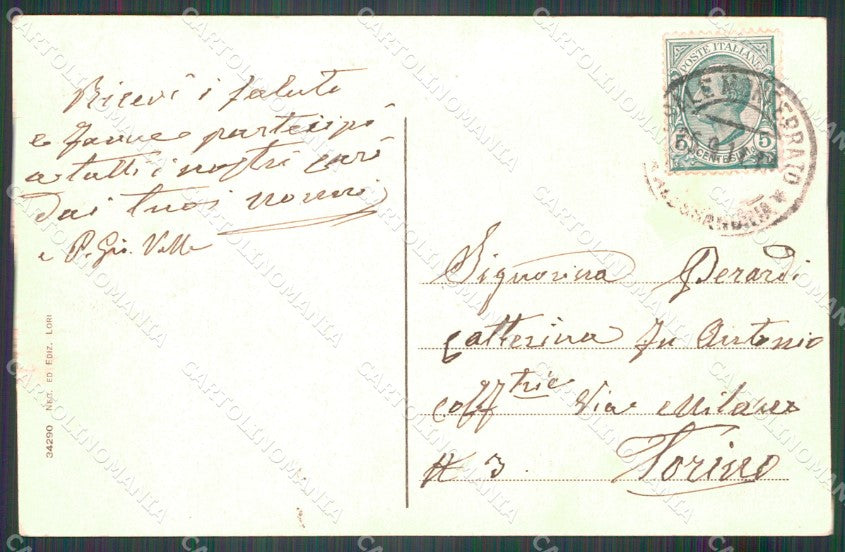 Ricevi i saluti
e fanne partecipi
a tutti i nostri cari
dai tuoi nonni
e P. Gio. Valle
34290 NEG. ED EDIZ. LORI
POSTE ITALIANE
5 5
CENTESIMI
MONFERRATO
ALESSANDRIA
Signorina Berardi
Catterina fu Antonio
Via Milano
N 3. Torino
CARTOLINOMANIA